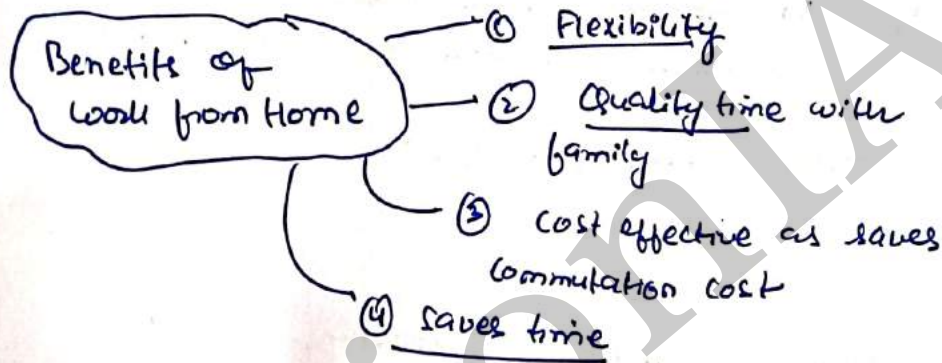 Benefits of
work from Home
① Flexibility
② Quality time with
family
③ cost effective as saves
commutation cost
④ saves time